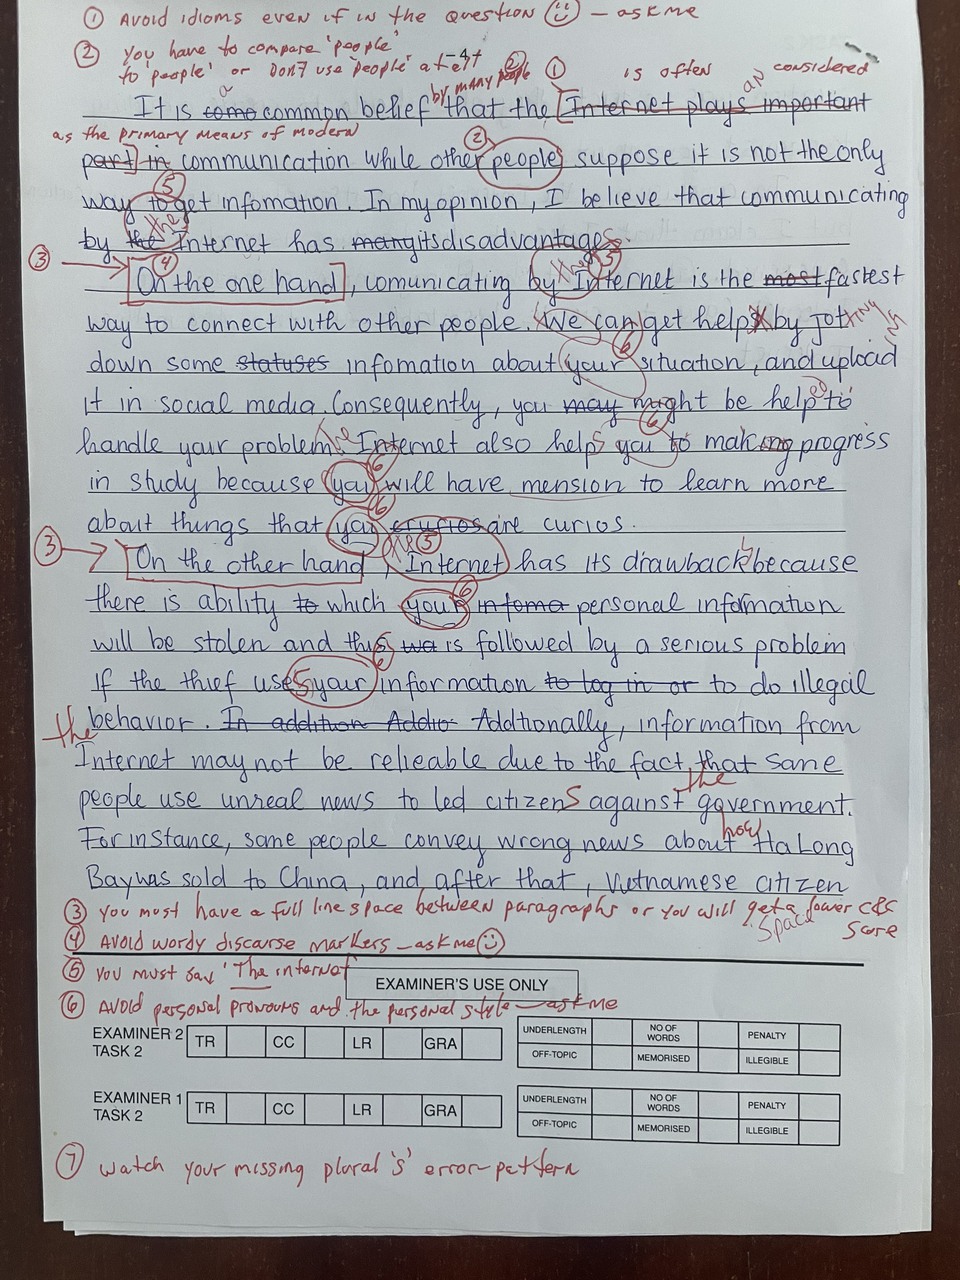 ① Avoid idioms even if in the question ☺ – ask me
② You have to compare 'people'
to 'people' or DON'T use 'people' at all
-4-
by many people ② ① is often an considered
a
It is some common belief that the [Internet plays important
as the primary means of modern
part] in communication while other people ② suppose it is not the only
way to get infomation. In my opinion, I believe that communicating
⑤ the
by the Internet has many its disadvantages.
③ → ④ the ⑤
On the one hand, comunicating by Internet is the most fastest
way to connect with other people. We can get help by jot
down some statuses infomation about your ⑥ situation, and upload
it in social media. Consequently, you may might be help ed to
handle your problem. The Internet also helps you ⑥ to making progress
in study because you ⑥ will have mension to learn more
about things that you ⑥ crurios are curios.
③ → On the other hand, the ⑤ Internet has its drawback s because
there is ability to which your ⑥ infoma personal information
will be stolen and this wa is followed by a serious problem
If the thief uses your ⑥ information to log in or to do illegal
behavior. In addition Addio Addtionally, information from
the
Internet may not be relieable due to the fact that same
the
people use unreal news to led citizens against government.
how
For instance, some people convey wrong news about Ha Long
Bay was sold to China, and after that, Vietnamese citizen
③ You must have a full line space between paragraphs or you will get a lower C&C
space score
④ Avoid wordy discourse markers – ask me ☺
⑤ You must say 'The internet'
EXAMINER'S USE ONLY
⑥ AVOID personal pronouns and the personal style – ask me
EXAMINER 2
TASK 2
TR CC LR GRA
UNDERLENGTH NO OF WORDS PENALTY
OFF-TOPIC MEMORISED ILLEGIBLE
EXAMINER 1
TASK 2
TR CC LR GRA
UNDERLENGTH NO OF WORDS PENALTY
OFF-TOPIC MEMORISED ILLEGIBLE
⑦ Watch your missing plural 's' error-pattern